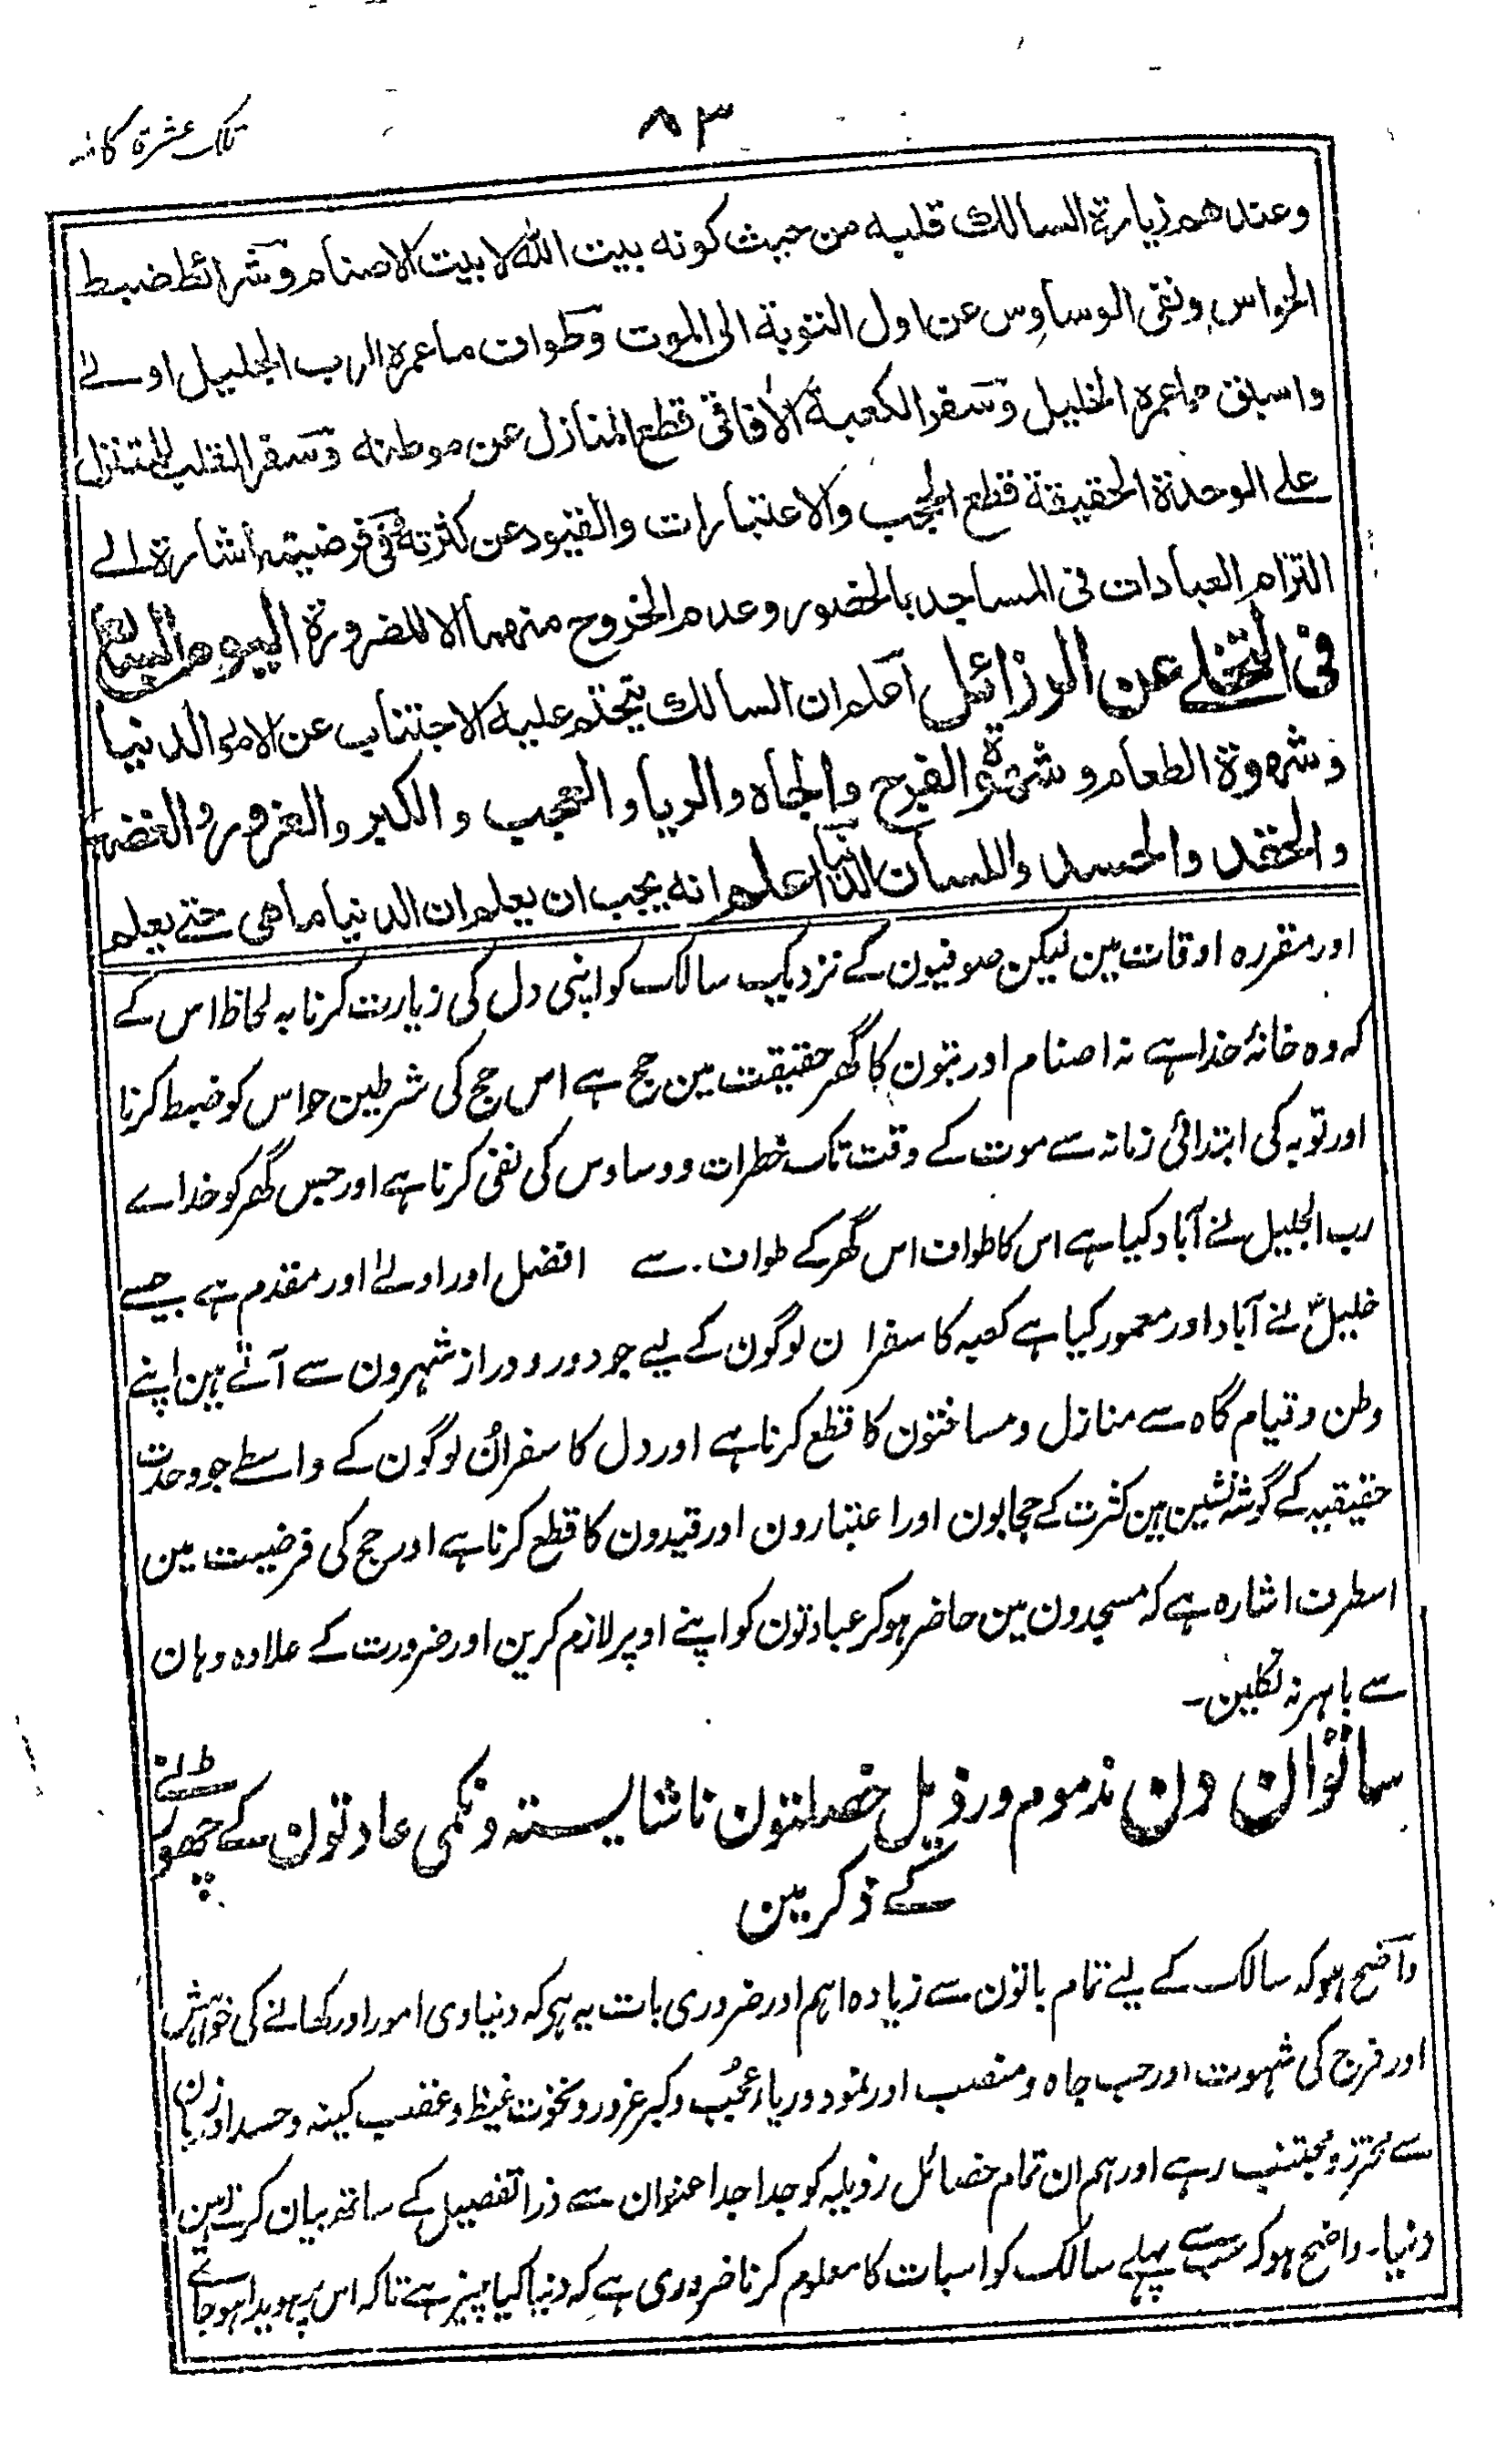 تلک عشرۃ کاملہ
۸۳
وعندهم زيارة السالك قلبه من حيث كونه بيت الله لا بيت الاصنام وشرائط ضبط
الحواس ونفى الوساوس عن اول التوبة الى الموت وطواف ما عمره الرب الجليل اولے
واسبق مما عمره الخليل وسفر الكعبة الآفاقى قطع المنازل عن موطنه وسفر القلب للمتنزل
على الوحدة الحقيقة قطع الحجب والاعتبارات والقيود عن كثرته وفى فرضيته اشارة الے
التزام العبادات فى المساجد بالحضور وعدم الخروج منها الا للضرورة اليوم السابع
فى التخلے عن الرزائل اعلم ان السالك يتحتم عليه الاجتناب عن الامور الدنيا
وشهوة الطعام وشهوة الفرج والجاه والريا والعجب والكبر والغرور والغضب
والحقد والحسد واللسان الدنيا اعلم انه يجب ان يعلم ان الدنيا ماهى حتے يعلم
اور مقررہ اوقات مین لیکن صوفیون کے نزدیک سالک کو اپنی دل کی زیارت کرنا بہ لحاظ اس کے
کہ وہ خانۂ خدا ہے نہ اصنام اور بتون کا گھر حقیقت مین حج ہے اس حج کی شرطین حواس کو ضبط کرنا
اور توبہ کی ابتدائی زمانہ سے موت کے وقت تک خطرات و وساوس کی نفی کرنا ہے اور جس گھر کو خداے
رب الجلیل نے آباد کیا ہے اس کا طواف اس گھر کے طواف سے افضل اور اولے اور مقدم ہے جسے
خلیلؑ نے آباد اور معمور کیا ہے کعبہ کا سفر ان لوگون کے لیے جو دور و دراز شہرون سے آتے ہین اپنے
وطن و قیام گاہ سے منازل و مسافتون کا قطع کرنا ہے اور دل کا سفر اُن لوگون کے واسطے جو وحدت
حقیقیہ کے گوشہ نشین ہین کثرت کے حجابون اور اعتبارون اور قیدون کا قطع کرنا ہے اور حج کی فرضیت مین
اسطرف اشارہ ہے کہ مسجدون مین حاضر ہوکر عبادتون کو اپنے اوپر لازم کرین اور ضرورت کے علاوہ وہان
سے باہر نہ نکلین۔
ساتوان دن مذموم و رذیل خصلتون ناشایستہ و نکمی عادتون کے چھوڑنے
کے ذکر مین
واضح ہو کہ سالک کے لیے تمام باتون سے زیادہ اہم اور ضروری بات یہ ہی کہ دنیاوی امور اور کھانے کی خواہش
اور فرج کی شہوت اور حب جاہ و منصب اور نمود و ریا، عُجُب و کبر غرور و نخوت غیظ و غضب کینہ و حسد اور زبان
سے محترز و مجتنب رہے اور ہم ان تمام خصائل رذیلہ کو جدا جدا عنوان سے ذرا تفصیل کے ساتھ بیان کرتے ہین
دنیا۔ واضح ہو کہ سب سے پہلے سالک کو اسبات کا معلوم کرنا ضروری ہے کہ دنیا کیا چیز ہے تاکہ اس پر ہویدا ہوجائے